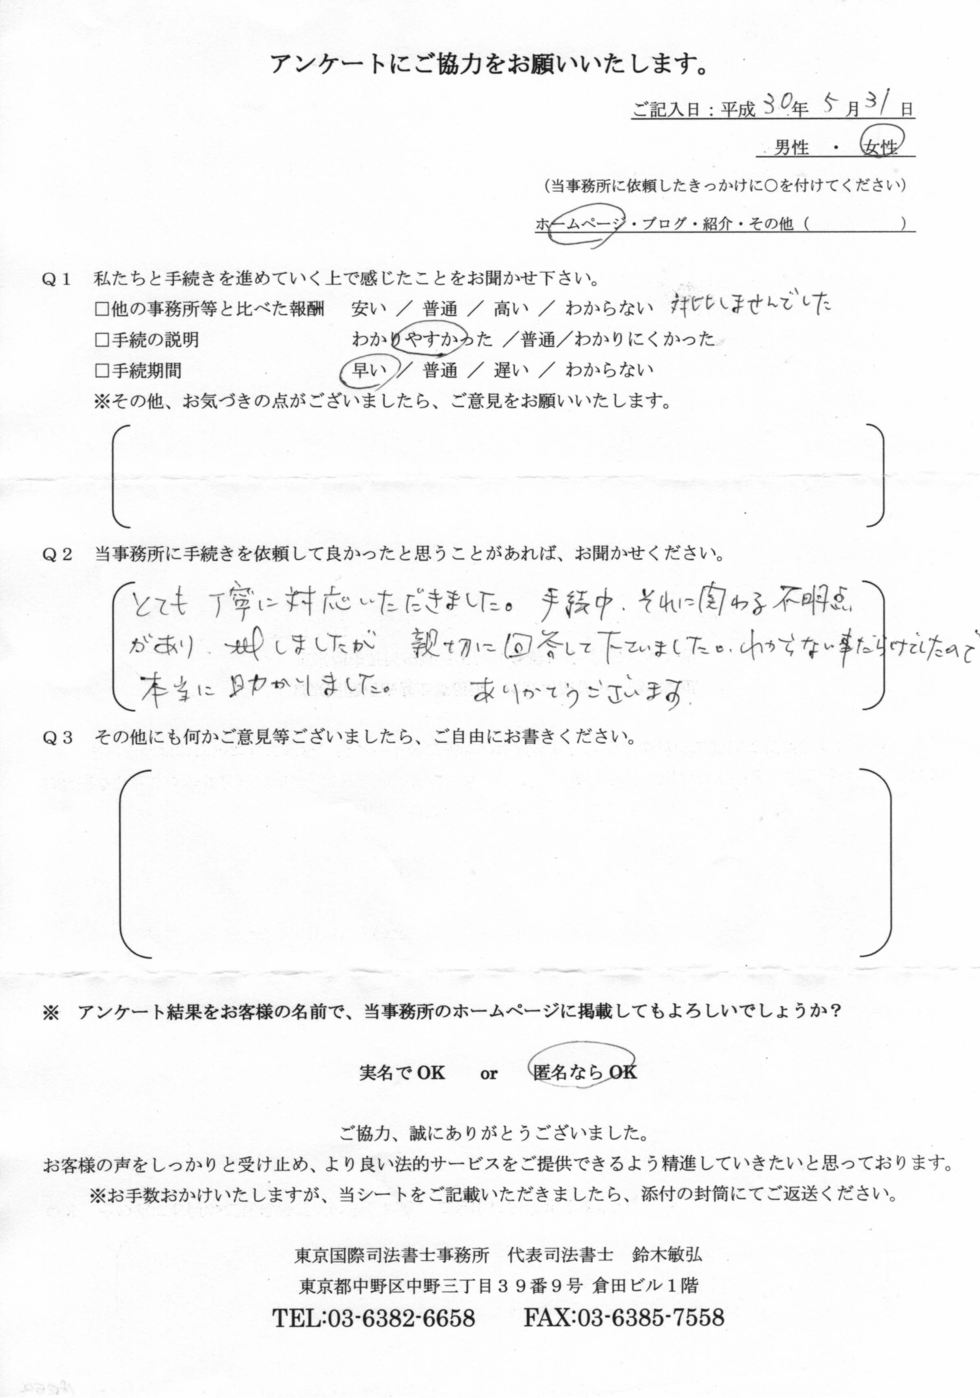 アンケートにご協力をお願いいたします。
ご記入日：平成30年 5月31日
男性 ・ 女性
（当事務所に依頼したきっかけに○を付けてください）
ホームページ・ブログ・紹介・その他（ ）
Q1 私たちと手続きを進めていく上で感じたことをお聞かせ下さい。
□他の事務所等と比べた報酬 安い ／ 普通 ／ 高い ／ わからない 対比しませんでした
□手続の説明 わかりやすかった ／普通／わかりにくかった
□手続期間 早い ／ 普通 ／ 遅い ／ わからない
※その他、お気づきの点がございましたら、ご意見をお願いいたします。
Q2 当事務所に手続きを依頼して良かったと思うことがあれば、お聞かせください。
とても丁寧に対応いただきました。手続中、それに関わる不明点
があり、しましたが 親切に回答して下さいました。わからない事だらけでしたので
本当に助かりました。 ありがとうございます。
Q3 その他にも何かご意見等ございましたら、ご自由にお書きください。
※ アンケート結果をお客様の名前で、当事務所のホームページに掲載してもよろしいでしょうか？
実名でOK or 匿名ならOK
ご協力、誠にありがとうございました。
お客様の声をしっかりと受け止め、より良い法的サービスをご提供できるよう精進していきたいと思っております。
※お手数おかけいたしますが、当シートをご記載いただきましたら、添付の封筒にてご返送ください。
東京国際司法書士事務所 代表司法書士 鈴木敏弘
東京都中野区中野三丁目３９番９号 倉田ビル１階
TEL:03-6382-6658 FAX:03-6385-7558